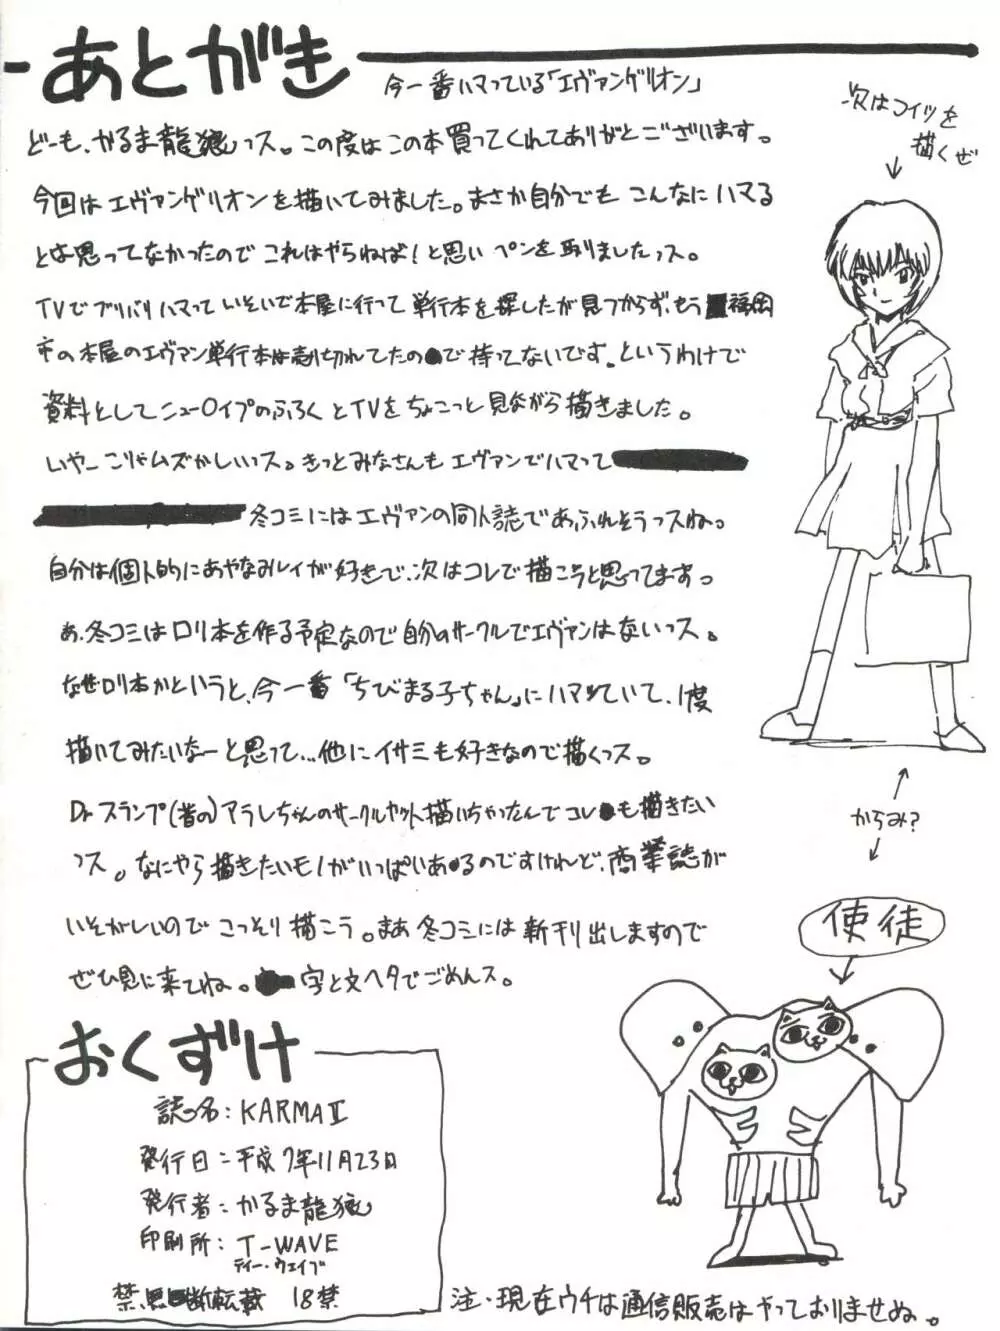 あとがき
今一番ハマっている「エヴァンゲリオン」
どーも、かるま龍狼っス。この度はこの本買ってくれてありがとございます。
今回はエヴァンゲリオンを描いてみました。まさか自分でもこんなにハマる
とは思ってなかったのでこれはやらねば!と思いペンを取りましたっス。
TVでブリバリハマっていそいで本屋に行って単行本を探したが見つからず、もう福岡
市の本屋のエヴァン単行本は売り切れてたので持ってないです。というわけで
資料としてニュー〇イプのふろくとTVをちょこっと見ながら描きました。
いやーこりゃムズかしいっス。きっとみなさんもエヴァンでハマって
冬コミにはエヴァンの同人誌であふれそうっスね。
自分は個人的にあやなみレイが好きで、次はコレで描こうと思ってますっ
あ、冬コミはロリ本を作る予定なので自分のサークルでエヴァンはないっス。
なぜロリ本かというと、今一番「ちびまる子ちゃん」にハマっていて、1度
描いてみたいなーと思って…他にイサミも好きなので描くっス。
Dr.スランプ(昔の)アラレちゃんのサークルカット描いちゃったんでコレも描きたい
っス。なにやら描きたいモノがいっぱいあるのですけれど、商業誌が
いそがしいのでこっそり描こう。まあ冬コミには新刊出しますので
ぜひ見に来てね。字と文ヘタでごめんス。
次はコイツを
描くぜ
からみ?
使徒
おくずけ
誌名:KARMAⅡ
発行日:平成7年11月23日
発行者:かるま龍狼
印刷所:T-WAVE
ティー・ウェイブ
禁、無断転載 18禁
注・現在ウチは通信販売はやっておりませぬ。